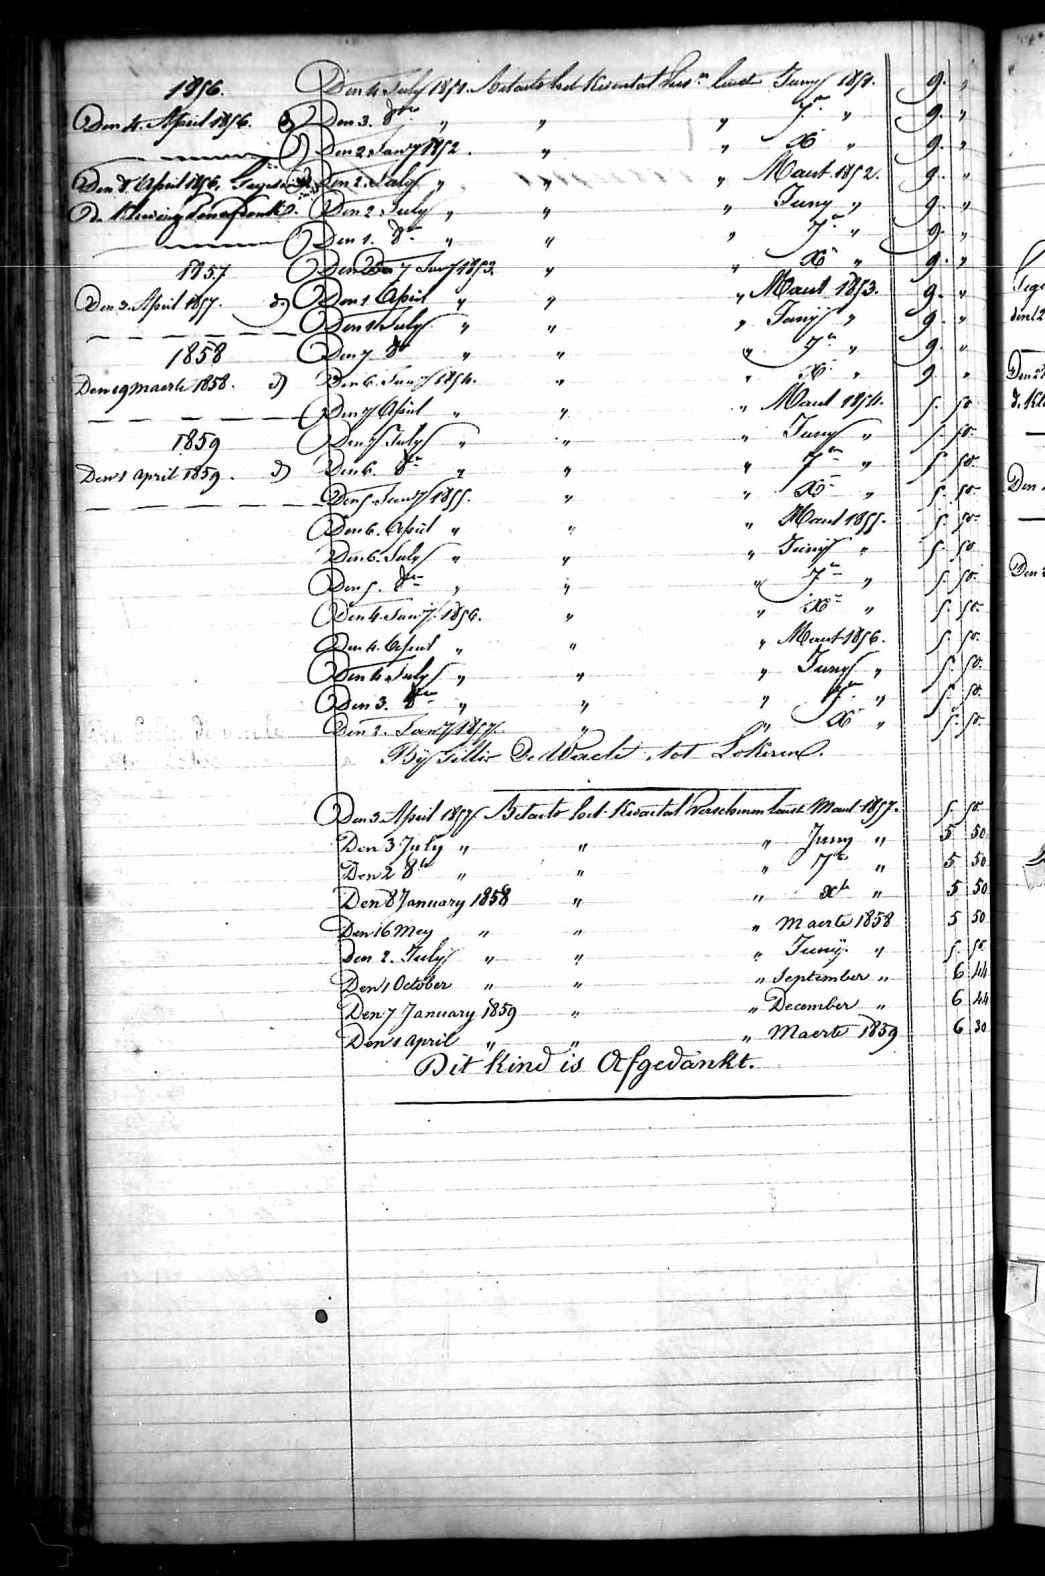 1856.
Den 4. April 1856. d)
Den 8 April 1856.
1857
Den 3. April 1857. d)
1858
Den 19 maerte 1858. d)
1859
Den 1 april 1859. d)
Den 4 July 1851. Betaelt het Kwartal laest Juny 1851. 9. "
Den 3. 8re " " " 7re " 9. "
Den 2 Jany 1852. " " Xr " 9. "
Den 2. July " " " Maart 1852. 9. "
Den 2 July " " " Juny " 9. "
Den 1. 8re " " " 7re " 9. "
Den 7 Jany 1853. " " Xr " 9. "
Den 1 April " " " Maart 1853. 9. "
Den 1 July " " " Juny " 9. "
Den 7 8re " " " 7re " 9. "
Den 6. Jany 1854. " " Xr " 9 "
Den 7 April " " " Maart 1854. 5. 50
Den 7 July " " " Juny " 5. 50.
Den 6. 8re " " " 7re " 5 50
Den 5. Jany 1855. " " Xr " 5. 50
Den 6. April " " " Maart 1855. 5. 50
Den 6. July " " " Juny " 5. 50
Den 5. 8re " " " 7re " 5. 50.
Den 4. Jany. 1856. " " Xr " 5. 50.
Den 4. April " " " Maart 1856. 5. 50.
Den 4 July " " " Juny " 5. 50.
Den 3. 8re " " " 7re " 5. 50
Den 2. Jany 1857. " " Xr " 5. 50
By De Wacle tot Lokeren.
Den 3. April 1857 Betaelt het Kwartal Verschenen laest Maart 1857. 5. 50.
Den 3 July " " " Juny " 5 50
Den 2 8re " " " 7re " 5 50
Den 8 January 1858 " " Xre " 5 50
Den 16 Mey " " " Maerte 1858 5 50
Den 2. July " " " Juny. " 5. 50.
Den 1 October " " " September " 6 44
Den 7 January 1859 " " December " 6 44
Den 1 april " " " Maerte 1859 6 30
Dit Kind is Afgedankt.